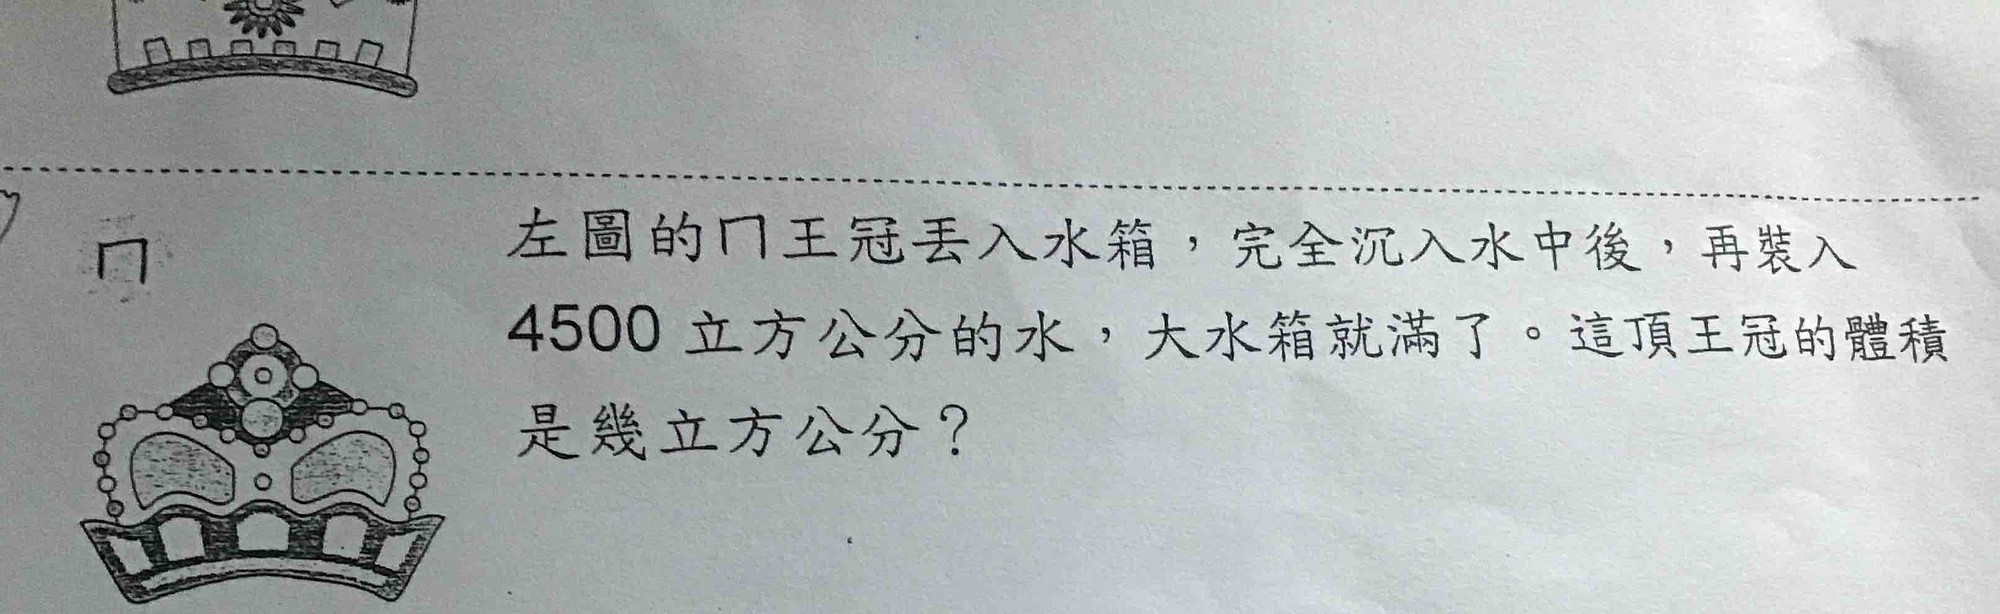 ㄇ
左圖的ㄇ王冠丟入水箱，完全沉入水中後，再裝入
4500 立方公分的水，大水箱就滿了。這頂王冠的體積
是幾立方公分？